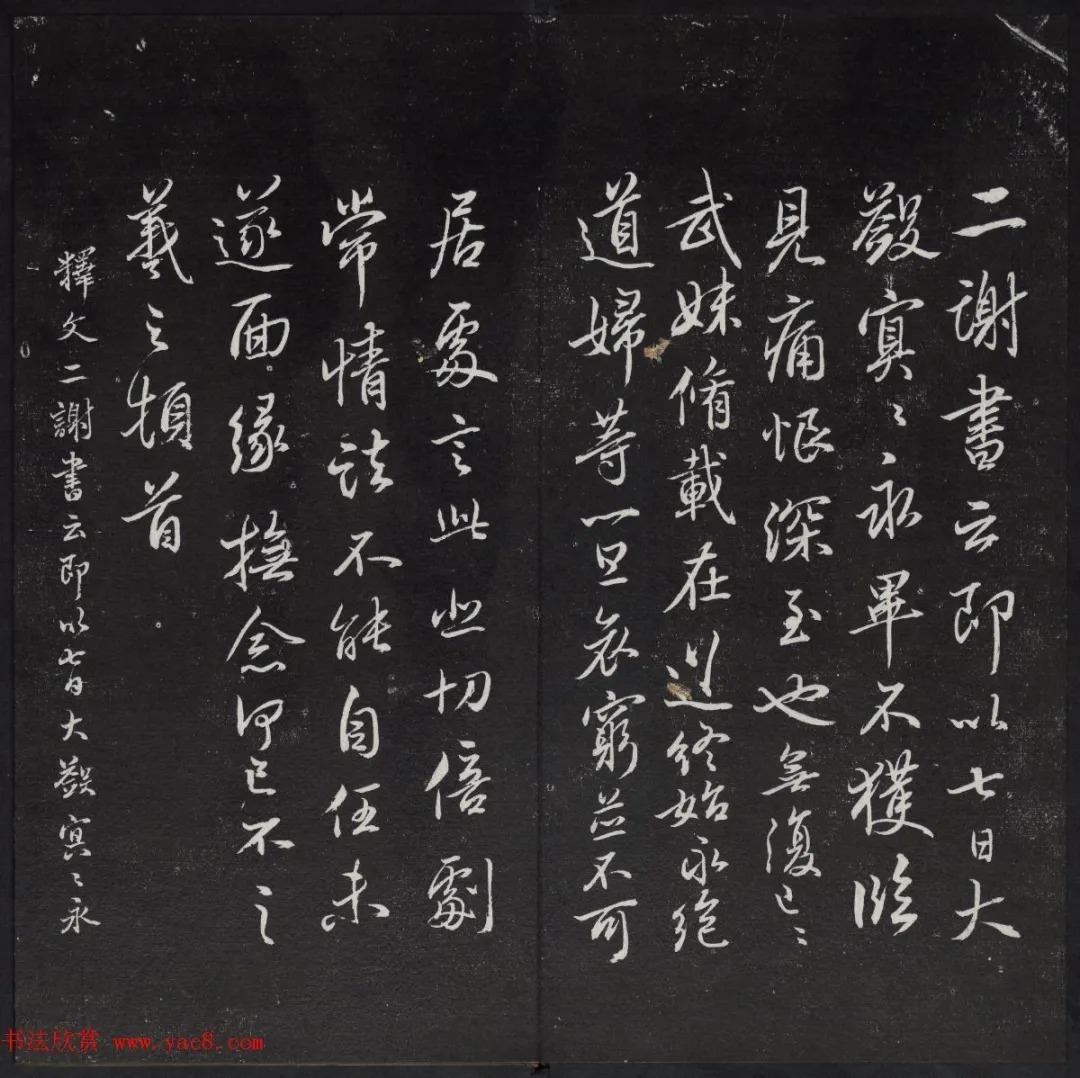 二謝書云即以七日大
斂冥〻永畢不獲臨
見痛恨深至也無復已〻
武妹脩載在道終始永絕
道婦等一旦哀窮並不可
居處言此悲切倍劇
常情諸不能自任未
遂面緣撫念何已不之
羲之頓首
釋文二謝書云即以七日大斂冥〻永
书法欣赏 www.yac8.com